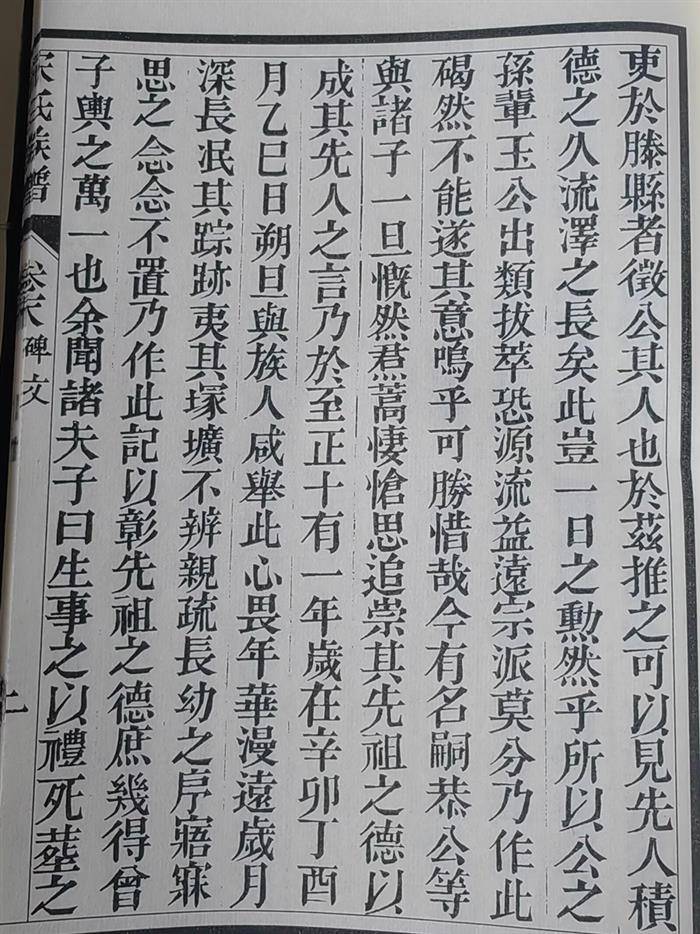 吏於滕縣者徵公其人也於茲推之可以見先人積
德之久流澤之長矣此豈一日之勲然乎所以公之
孫輩玉公出類拔萃恐源流益遠宗派莫分乃作此
碣然不能遂其意嗚乎可勝惜哉今有名嗣恭公等
與諸子一旦慨然焄蒿悽愴思追崇其先祖之德以
成其先人之言乃於至正十有一年歲在辛卯丁酉
月乙巳日朔旦與族人咸舉此心畏年華漫遠歲月
深長泯其踪跡夷其塚壙不辨親疏長幼之序寤寐
思之念念不置乃作此記以彰先祖之德庶幾得曾
子輿之萬一也余聞諸夫子曰生事之以禮死塟之
宋氏族譜
碑文
二